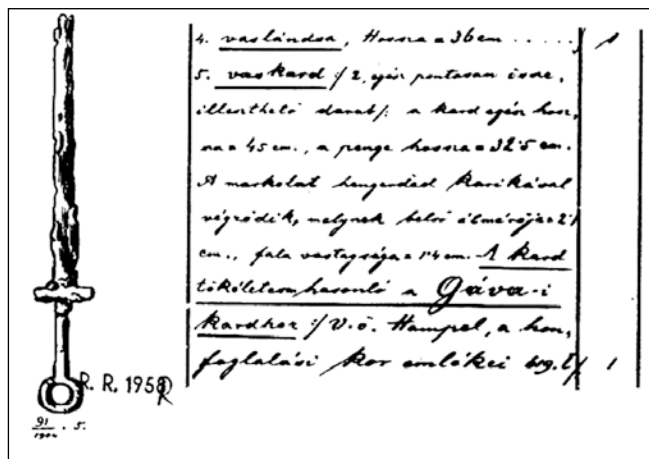 4. vaslándsa, Hossza = 36 cm ..... / 1
5. vaskard :/ 2, egész pontosan össze,
illeszthető darab /: a kard egész hosz,
sza = 45 cm., a penge hossza = 32·5 cm.
A markolat hengerded karikával
végződik, melynek belső átmérője = 2·1
cm., fala vastagsága = 1·4 cm. A kard
tökéletesen hasonló a Gáva-i
kardhoz :/ V. ö. Hampel, a hon,
foglalási kor emlékei 619. l / 1
R. R. 1958
91/1904 . 5.